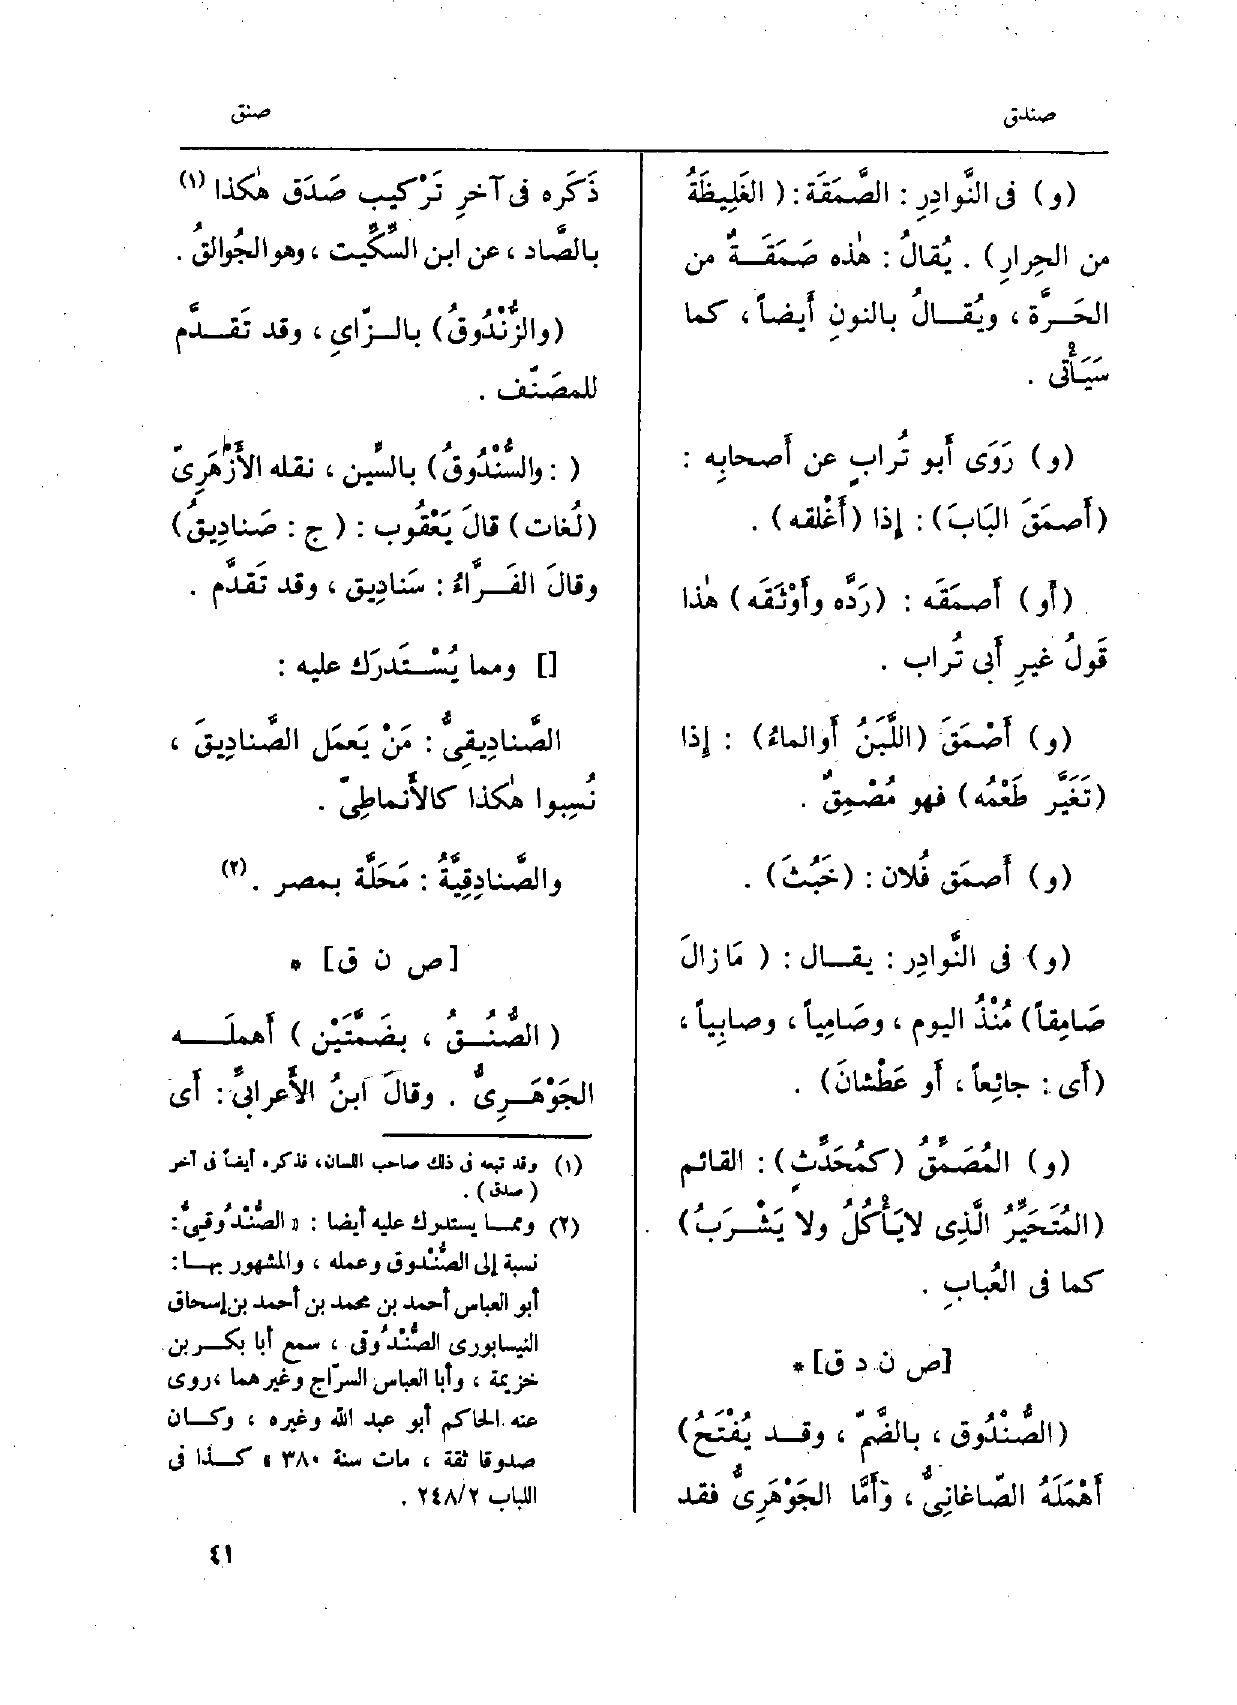 صندق
صنق
(و) فى النَّوادِرِ : الصَّمَقَة: ( الغَلِيظَةُ
من الحِرارِ) . يُقالُ : هٰذه صَمَقَـةٌ من
الحَـرَّة ، ويُقـالُ بالنونِ أَيضاً ، كما
سَيَأْتى .
(و) رَوَى أَبو تُرابٍ عن أَصحابِه :
(أَصمَقَ البَابَ) : إِذا (أَغْلقه) .
(أَو) أَصمَقَه : (رَدَّه وأَوْثَقَه) هٰذا
قَولُ غيرِ أَبى تُراب .
(و) أَصْمَقَ (اللَّبَنُ أَوالماءُ) : إِذا
(تَغَيَّر طَعْمُه) فهو مُصْمِقٌ .
(و) أَصمَق فُلان : (خَبُثَ) .
(و) فى النَّوادِر : يقـال : ( مَا زالَ
صَامِقاً) مُنْذُ اليوم ، وصَامِياً ، وصابِياً ،
(أَى : جائِعاً ، أَو عَطْشانَ) .
(و) المُصَمِّقُ (كمُحَدِّثٍ) : القائم
(المُتَحَيِّرُ الَّذِى لايَأْكُلُ ولا يَشْـرَبُ)
كما فى العُبابِ .
[ص ن د ق] *
(الصُّنْدُوق ، بالضَّمّ ، وقـد يُفْتَحُ)
أَهْمَلَهُ الصّاغانِىُّ ، وَأَمَّا الجَوْهَرِىُّ فقد
ذَكَره فى آخرِ تَرْكيب صَدَق هٰكذا (١)
بالصَّاد ، عن ابن السِّكِّيت ، وهو الجُوالقُ .
(والزُّنْدُوقُ) بالـزّاىِ ، وقد تَقـدَّم
للمصَنّف .
( : والسُّنْدُوقُ) بالسِّين ، نقله الأَزْهَرِىّ
(لُغات) قالَ يَعْقُوب : ( ج : صَنادِيقُ)
وقالَ الفَـرَّاءُ : سَنادِيق ، وقد تَقدَّم .
[] ومما يُسْـتَدرَك عليه :
الصَّنادِيقِىُّ : مَنْ يَعمَل الصَّنادِيقَ ،
نُسِبوا هٰكذا كالأَنماطِىّ .
والصَّنادِقِيَّةُ : مَحَلَّة بمصر . (٢)
[ص ن ق] *
( الصُّنُـقُ ، بضَمَّتَيْن ) أَهملَـــه
الجَوْهَـرِىُّ . وقالَ ابنُ الأَعرابىِّ : أَى
(١) وقد تبعه فى ذلك صاحب اللسان، فذكره أيضاً فى آخر
( صدق ) .
(٢) وممـا يستدرك عليه أيضا : « الصُّنْدُوقِىُّ:
نسبة إلى الصُّنْدوق وعمله ، والمشهور بهـا:
أبو العباس أحمد بن محمد بن أحمد بن إسحاق
النيسابورى الصُّنْدُوقى ، سمع أبا بكـر بن
خزيمة ، وأبا العباس السرّاج وغيرهما ، روى
عنه الحاكم أبو عبد الله وغيره ، وكـان
صدوقا ثقة ، مات سنة ٣٨٠ » كـذا فى
اللباب ٢٤٨/٢ .
٤١